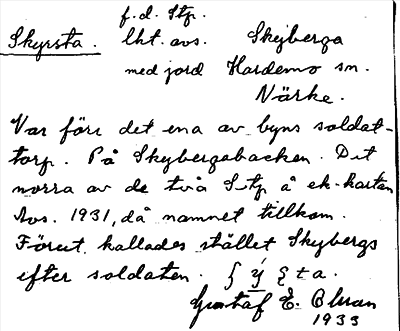 f.d. Stp.
Skyrsta. lht. avs. Skyberga
med jord Hardemo sn.
Närke.
Var förr det ena av byns soldat-
torp. På Skybergabacken. Det
norra av de två Stp å ek.kartan
Avs. 1931, då namnet tillkom.
Förut kallades stället Skybergs
efter soldaten.
Gustaf E. Olsson
1933